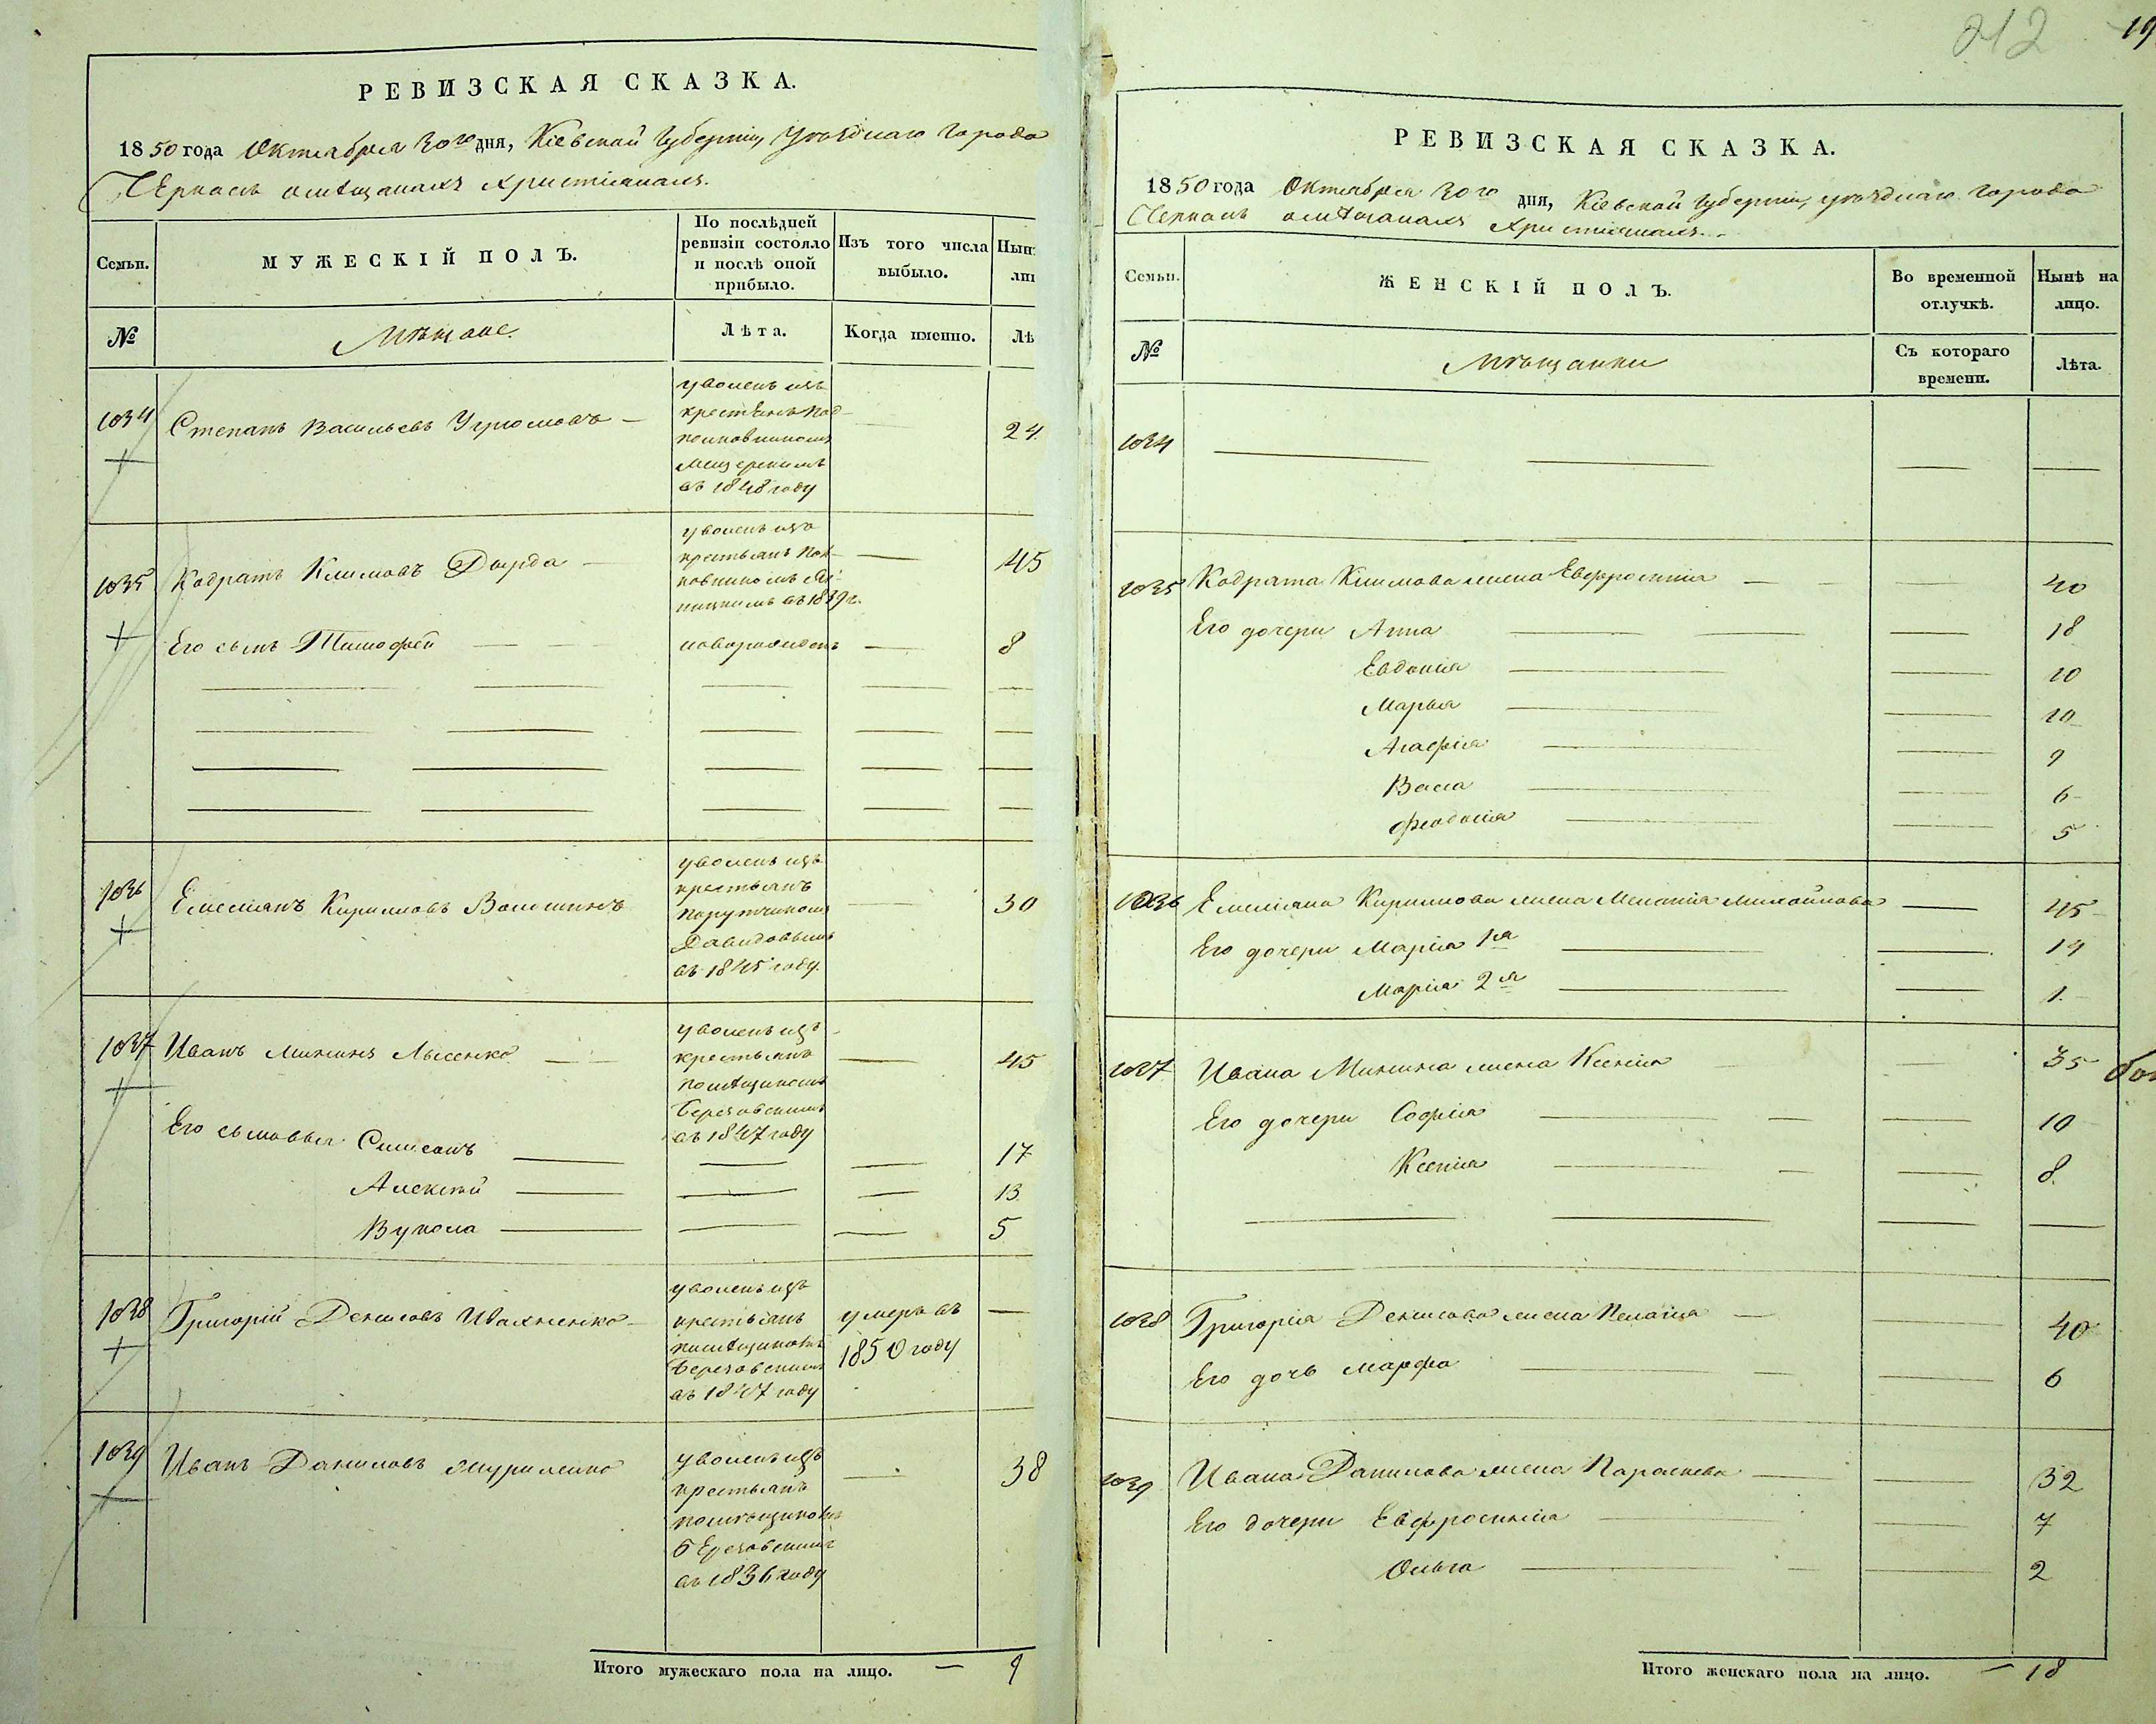 РЕВИЗСКАЯ СКАЗКА.
1850 года Октября 30го дня, Кіевской Губерніи, Уѣзднаго Города
Черкасъ омѣщанахъ христіанахъ.
Семьи.
МУЖЕСКІЙ ПОЛЪ.
По послѣдней ревизіи состояло и послѣ оной прибыло.
Изъ того числа выбыло.
Нын
ли
№
Мѣщане.
Лѣта.
Когда именно.
Лѣ
1034 Степанъ Васильевъ — 24
уволенъ изъ
крестьянъ под-
полковникомъ
въ 1848 году
1035 Кодратъ Климовъ Дырда — 45
уволенъ изъ
крестьянъ пол-
ковникомъ
Его сынъ Тимофей новорожденъ — 8
1036 Емеліянъ Кириловъ — 30
уволенъ изъ
крестьянъ
Порутчикомъ
Давидовымъ
въ 1845 году.
1037 Иванъ Мининъ Лысенко — 45
уволенъ изъ
крестьянъ
помѣщикомъ
Березовскимъ
въ 1847 году
Его сыновья Симеонъ — 17
Алексѣй — 13
Вукола — 5
1038 Григорій Денисовъ Ивахненко —
уволенъ изъ
крестьянъ умеръ въ
помѣщикомъ 1850 году
Березовскимъ
въ 1847 году
1039 Иванъ Даниловъ — 38
уволенъ изъ
крестьянъ
помѣщикомъ
Березовскимъ
въ 1836 году
Итого мужескаго пола на лицо. — 9
212
19
РЕВИЗСКАЯ СКАЗКА.
1850 года Октября 30го дня, Кіевской Губерніи, уѣзднаго Города
Черкасъ омѣщанахъ Христіанахъ.
Семьи.
ЖЕНСКІЙ ПОЛЪ.
Во временной отлучкѣ.
Нынѣ на лицо.
№
Мѣщанки
Съ котораго времени.
Лѣта.
1034
1035 Кодрата Климова жена Евфросинія — 40
Его дочери Анна — 18
Евдокія — 10
Марья — 10
Агафія — 9
Васса — 6
Феодосія — 5
1036 Емеліяна Кирилова жена Меланія Михайлова — 45
Его дочери Марія 1я — 14
Марія 2я — 1.
1037 Ивана Минина жена Ксенія — 35
Его дочери Софія — 10
Ксенія — 8.
1038 Григорія Денисова жена Пелагія — 40
Его дочь Марфа — 6
1039 Ивана Данилова жена Параскева — 32
Его дочери Евфросинія — 7
Ольга — 2
Итого женскаго пола на лицо. — 18